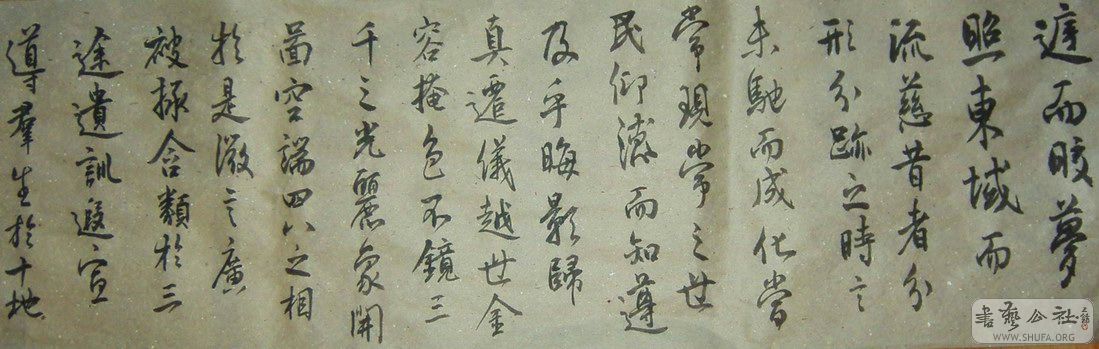 庭而皎夢
照東域而
流慈昔者分
形分跡之時言
未馳而成化當
常現常之世
民仰德而知遵
及乎晦影歸
真遷儀越世金
容掩色不鏡三
千之光麗象開
圖空端四八之相
於是微言廣
被拯含類於三
途遺訓遐宣
導羣生於十地
書藝公社
WWW.SHUFA.ORG